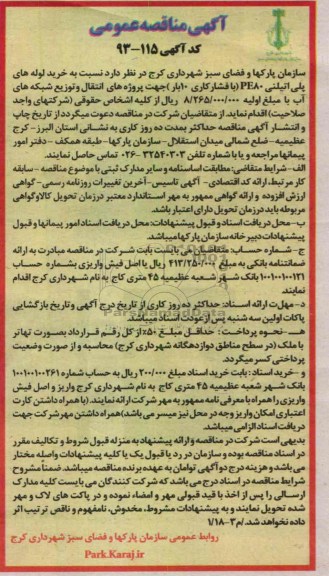 آگهی مناقصه عمومی
کد آگهی ۱۱۵-۹۳
سازمان پارکها و فضای سبز شهرداری کرج در نظر دارد نسبت به خرید لوله های
پلی اتیلنی PE۸۰ (با فشار کاری ۱۰ بار) جهت پروژه های انتقال و توزیع شبکه های
آب با مبلغ اولیه ۸/۲۶۵/۰۰۰/۰۰۰ ریال از کلیه اشخاص حقوقی (شرکتهای واجد
صلاحیت) اقدام نماید. از متقاضیان شرکت در مناقصه دعوت میگردد از تاریخ چاپ
و انتشار آگهی مناقصه حداکثر بمدت ده روز کاری به نشانی استان البرز - کرج
عظیمیه - ضلع شمالی میدان استقلال - سازمان پارکها - طبقه همکف - دفتر امور
پیمانها مراجعه و یا با شماره تلفن ۳۲۵۴۰۳۰۳-۰۲۶ تماس حاصل نمایند.
الف - شرایط متقاضی: مطابقت اساسنامه و سایر مدارک ثبتی با موضوع مناقصه - سابقه
کار مرتبط، ارائه کد اقتصادی - آگهی تاسیس - آخرین تغییرات روزنامه رسمی - گواهی
ارزش افزوده و ارائه گواهی ممهور به مهر استاندارد معتبر درزمان تحویل کالا و گواهی
مربوطه باید درزمان تحویل دارای اعتبار باشد.
ب - محل دریافت اسناد و قبول پیشنهادات: محل دریافت اسناد امور پیمانها و قبول
پیشنهادات دبیرخانه سازمان پارکها میباشد.
ج - شماره حساب: متقاضیان می بایست بابت شرکت در مناقصه مبادرت به ارائه
ضمانتنامه بانکی به مبلغ ۴۱۳/۲۵۰/۰۰۰ ریال یا اصل فیش واریزی بشماره حساب
۱۰۰۱۰۰۱۰۰۱۳۱ بانک شهر شعبه عظیمیه ۴۵ متری کاج به نام شهرداری کرج اقدام
نمایند.
د - مهلت ارائه اسناد: حداکثر ده روز کاری از تاریخ درج آگهی و تاریخ بازگشایی
پاکات اولین سه شنبه پس از عودت اسناد میباشد.
هـ - نحوه پرداخت: حداقل مبلغ ۵۰٪ از کل رقم قرارداد بصورت تهاتر
با ملک (در سطح مناطق دوازدهگانه شهرداری کرج) محاسبه و از صورت وضعیت
پرداختی کسر میگردد.
و - خرید اسناد: بابت خرید اسناد مبلغ ۲۰۰/۰۰۰ ریال به حساب شماره ۱۰۰۱۰۰۱۰۰۲۶۱
بانک شهر شعبه عظیمیه ۴۵ متری کاج به نام شهرداری کرج واریز و اصل فیش
واریزی را همراه با معرفی نامه ممهور به مهر شرکت ارائه نمایند. (با همراه داشتن کارت
اعتباری امکان واریز وجه در محل نیز میسر می باشد) همراه داشتن مهر شرکت جهت
دریافت اسناد الزامی میباشد.
بدیهی است شرکت در مناقصه و ارائه پیشنهاد به منزله قبول شروط و تکالیف مقرر
در اسناد مناقصه بوده و سازمان در رد یا قبول یک یا کلیه پیشنهادات واصله مختار
می باشد و هزینه درج دو آگهی توامان به عهده برنده مناقصه میباشد. ضمنا مشروح
شرایط مناقصه در اسناد درج می باشد که شرکت کنندگان می بایست کلیه مدارک
ارسالی را پس از اخذ با قید قبولی مهر و امضاء نموده و در پاکت های لاک و مهر
شده تحویل نمایند و به پیشنهادات مشروط، مخدوش، نامفهوم و ناقص ترتیب اثر
داده نخواهد شد. /م ۳-۱/۱۸
روابط عمومی سازمان پارکها و فضای سبز شهرداری کرج
Park.Karaj.ir